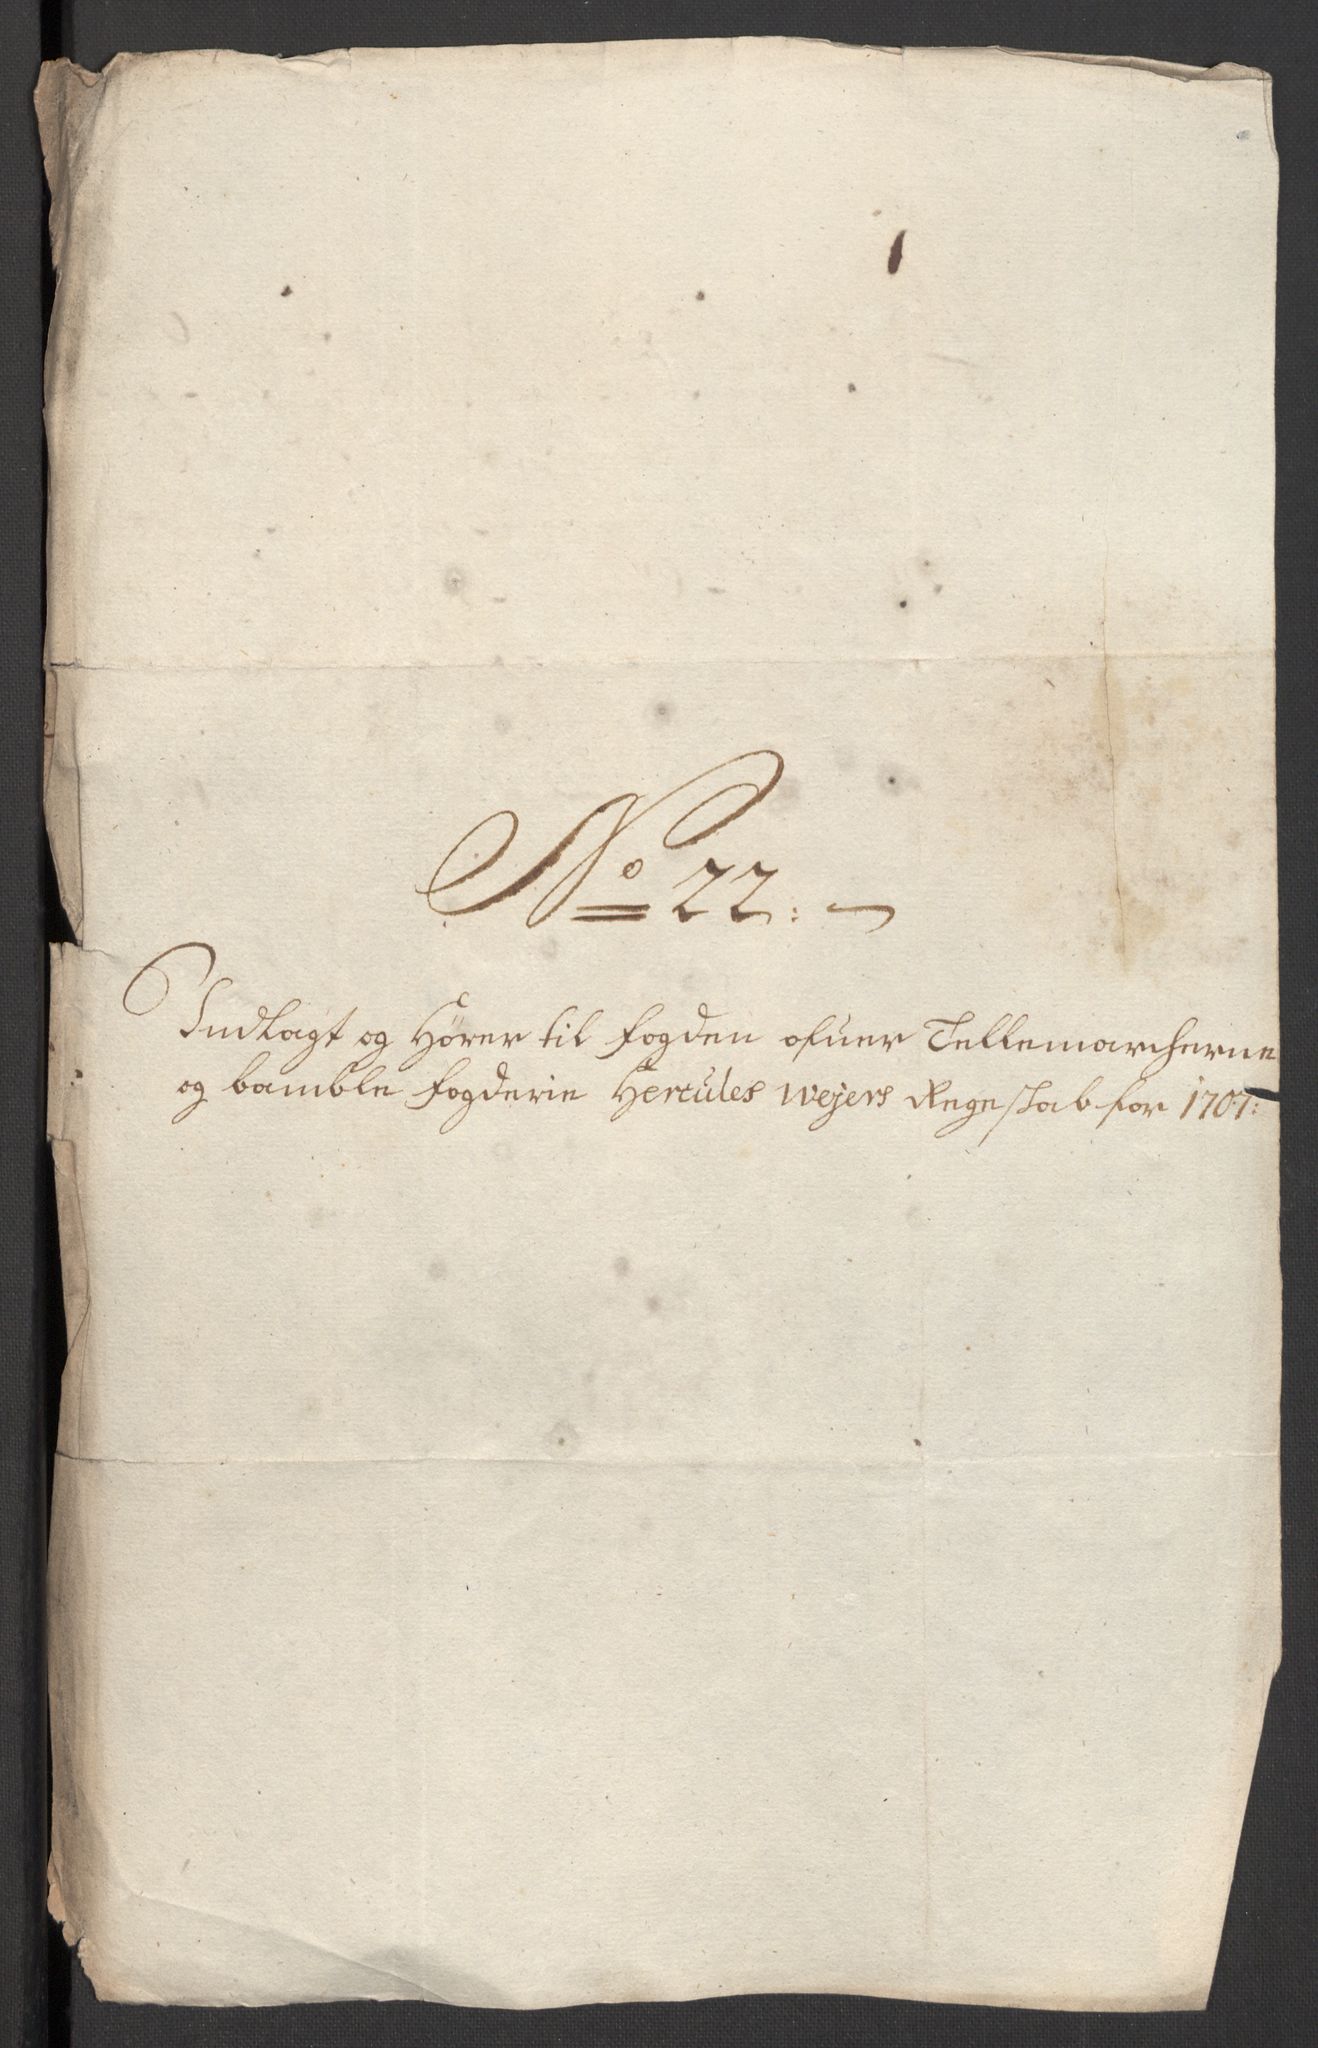 No 22:
Indlagt og Hører til fogden ofuer Tellemarcherne
og bamble fogderie Hercules Wejers Regeskab for 1707: